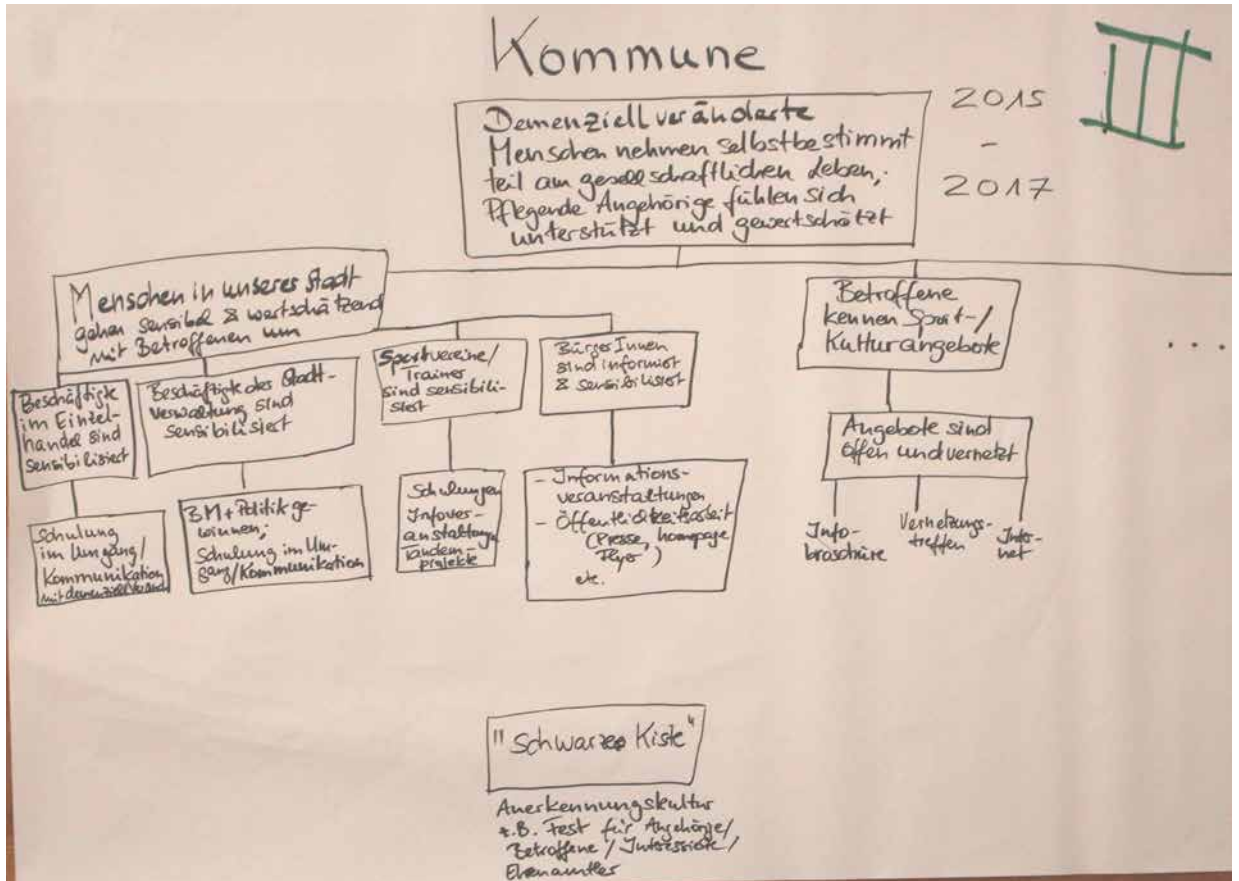 Kommune
III
Demenziell veränderte
Menschen nehmen selbstbestimmt
teil am gesellschaftlichen Leben,
Pflegende Angehörige fühlen sich
unterstützt und gewertschätzt
2015
-
2017
Menschen in unserer Stadt
gehen sensibel & wertschätzend
mit Betroffenen um
Betroffene
kennen Sport-/
Kulturangebote
...
Beschäftigte
im Einzel-
handel sind
sensibilisiert
Beschäftigte der Stadt-
verwaltung sind
sensibilisiert
Sportvereine/
Trainer
sind sensibili-
siert
BürgerInnen
sind informiert
& sensibilisiert
Angebote sind
offen und vernetzt
Schulung
im Umgang/
Kommunikation
mit demenziell Veränd.
BM + Politik ge-
winnen;
Schulung im Um-
gang/Kommunikation
Schulungen
Infover-
anstaltung
Tandem-
projekte
- Informations-
veranstaltungen
- Öffentlichkeitsarbeit
(Presse, homepage
Flyer)
etc.
Info-
broschüre
Vernetzungs-
treffen
Inter-
net
"Schwarze Kiste"
Anerkennungskultur
z.B. Fest für Angehörige/
Betroffene / Interessierte /
Ehrenamtler